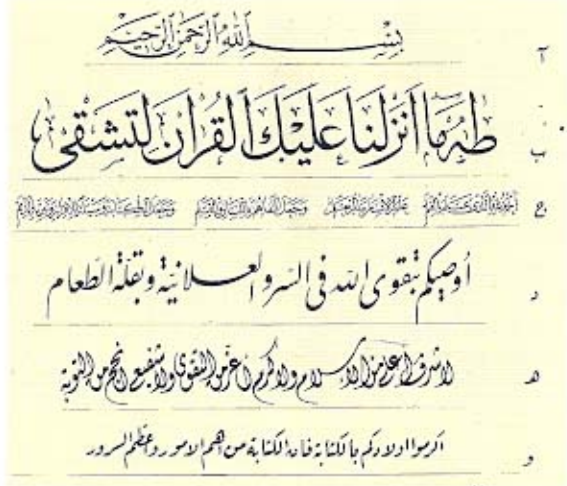 آ بِسْمِ اللهِ الرَّحْمنِ الرَّحِيْمِ
ب طٰهٰ مَا اَنْزَلْنَا عَلَيْكَ الْقُرْاٰنَ لِتَشْقٰى
ج
د أوصيكم بتقوى الله فى السّر والعلانيّة وبقلّة الطّعام
ه لا شرف أعلى من الإسلام ولا كرم أعزّ من التّقوى ولا شفيع انجح من التوبة
و اكرموا اولادكم بالكتابة فان الكتابة من اهم الامور واعظم السرور